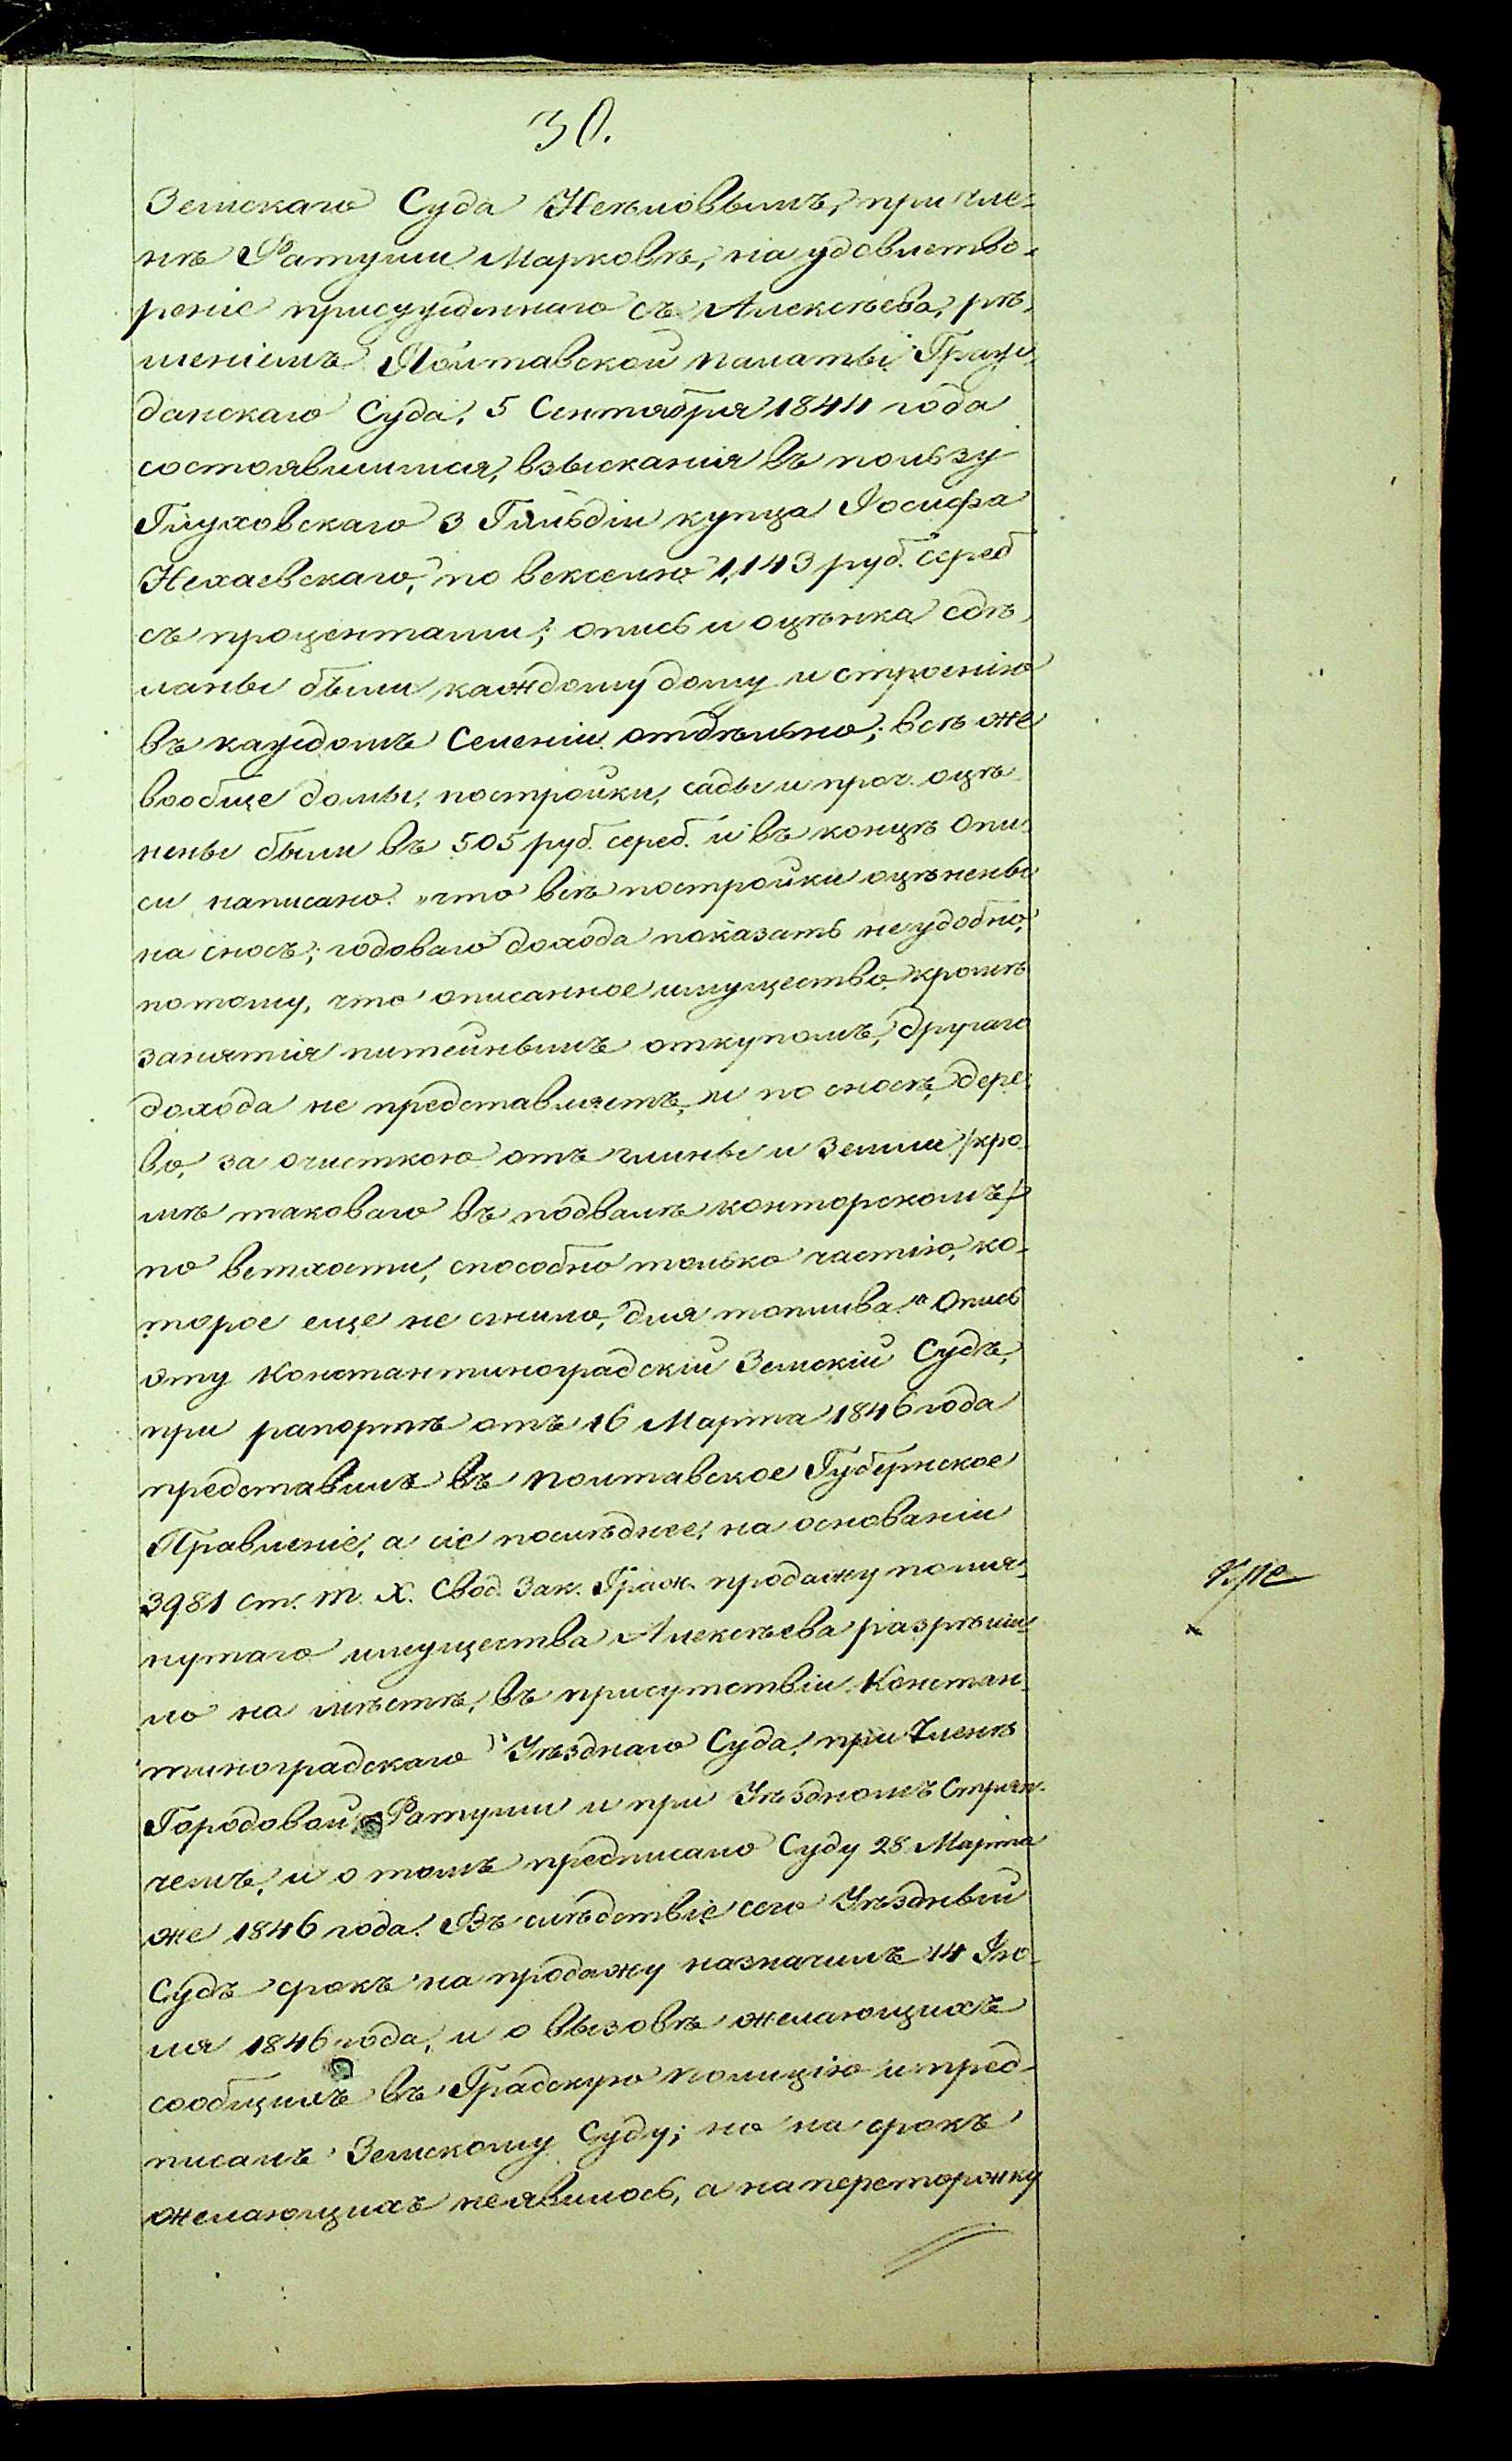 30.
Земскаго Суда Нееловымъ, при чле-
нѣ Ратуши Марковѣ, на удовлетво-
реніе присужденнаго съ Алексѣева, рѣ-
шеніемъ Полтавской палаты Граж-
данскаго Суда, 5 Сентября 1844 года
состоявшимся, взысканія въ пользу
Глуховскаго 3 Гильдіи купца Іосифа
Нехаевскаго, по векселю 1,143 руб. сереб
съ процентами; опись и оцѣнка сдѣ-
ланы были каждому дому и строенію
въ каждомъ Селеніи отдѣльно; всѣ же
вообще домы, постройки, сады и проч. оцѣ-
нены были въ 505 руб. сереб. и въ концѣ опи-
си написано: „что всѣ постройки оцѣнены
на сносъ; годоваго дохода показать неудобно,
потому, что описанное имущество, кромѣ
занятія питейнымъ откупомъ, другаго
дохода не представляетъ, и по сносѣ, дере-
во, за очисткою отъ глины и земли /кро-
мѣ таковаго въ подвалѣ конторскомъ/
по ветхости, способно только частію, ко-
торое еще не сгнило, для топлива.“ Опись
эту Константиноградскій Земскій Судъ,
при рапортѣ отъ 16 Марта 1846 года
представилъ въ Полтавское Губернское
Правленіе, а сіе послѣднее, на основаніи
3981 ст. Т. X. Свод. Зак. Граж. продажу помя-
нутаго имущества Алексѣева разрѣши-
ло на мѣстѣ, въ присутствіи Констан-
тиноградскаго Уѣзднаго Суда, при Членѣ
Городовой Ратуши и при Уѣздномъ Стряп-
чемъ, и о томъ предписало Суду 28 Марта
же 1846 года. Въ слѣдствіе сего Уѣздный
Судъ срокъ на продажу назначилъ 14 Ію-
ля 1846 года, и о вызовѣ желающихъ
сообщилъ въ Градскую полицію и пред-
писалъ Земскому Суду; но на срокъ
желающихъ неявилось, а на переторжку